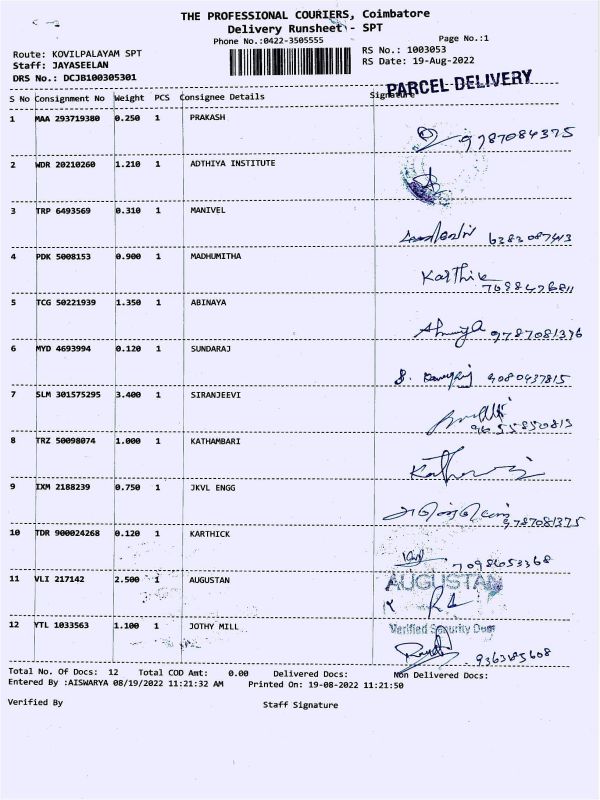 THE PROFESSIONAL COURIERS, Coimbatore
Delivery Runsheet - SPT
Phone No.:0422-3505555
Page No.:1
Route: KOVILPALAYAM SPT
RS No.: 1003053
Staff: JAYASEELAN
RS Date: 19-Aug-2022
DRS No.: DCJB100305301
PARCEL DELIVERY
S No Consignment No Weight PCS Consignee Details Signature
1 MAA 293719380 0.250 1 PRAKASH
9787084375
2 WDR 20210260 1.210 1 ADTHIYA INSTITUTE
3 TRP 6493569 0.310 1 MANIVEL
6282087413
4 PDK 5008153 0.900 1 MADHUMITHA
Karthik
5 TCG 50221939 1.350 1 ABINAYA
9787081376
6 MYD 4693994 0.120 1 SUNDARAJ
9080437815
7 SLM 301575295 3.400 1 SIRANJEEVI
9655850813
8 TRZ 50098074 1.000 1 KATHAMBARI
9 IXM 2188239 0.750 1 JKVL ENGG
9787081375
10 TDR 900024268 0.120 1 KARTHICK
7098653368
11 VLI 217142 2.500 1 AUGUSTAN
AUGUSTAN
12 YTL 1033563 1.100 1 JOTHY MILL
Verified Security Dept
Total No. Of Docs: 12 Total COD Amt: 0.00 Delivered Docs: Non Delivered Docs:
Entered By :AISWARYA 08/19/2022 11:21:32 AM Printed On: 19-08-2022 11:21:50
Verified By Staff Signature